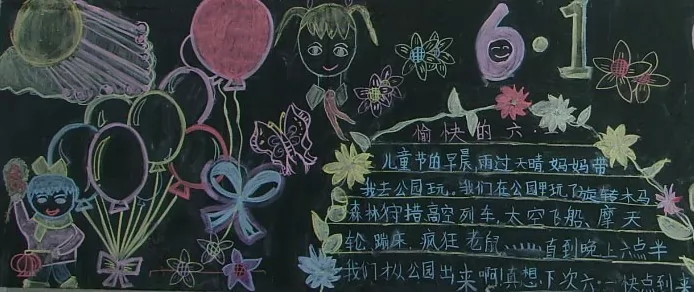 6·1
愉快的六·一
儿童节的早晨,雨过天晴妈妈带
我去公园玩。我们在公园里玩了旋转木马
森林狩措高空列车,太空飞船、摩天
轮,蹦床,疯狂老鼠……直到晚上六点半
我们才从公园出来啊!真想下次六·一快点到来